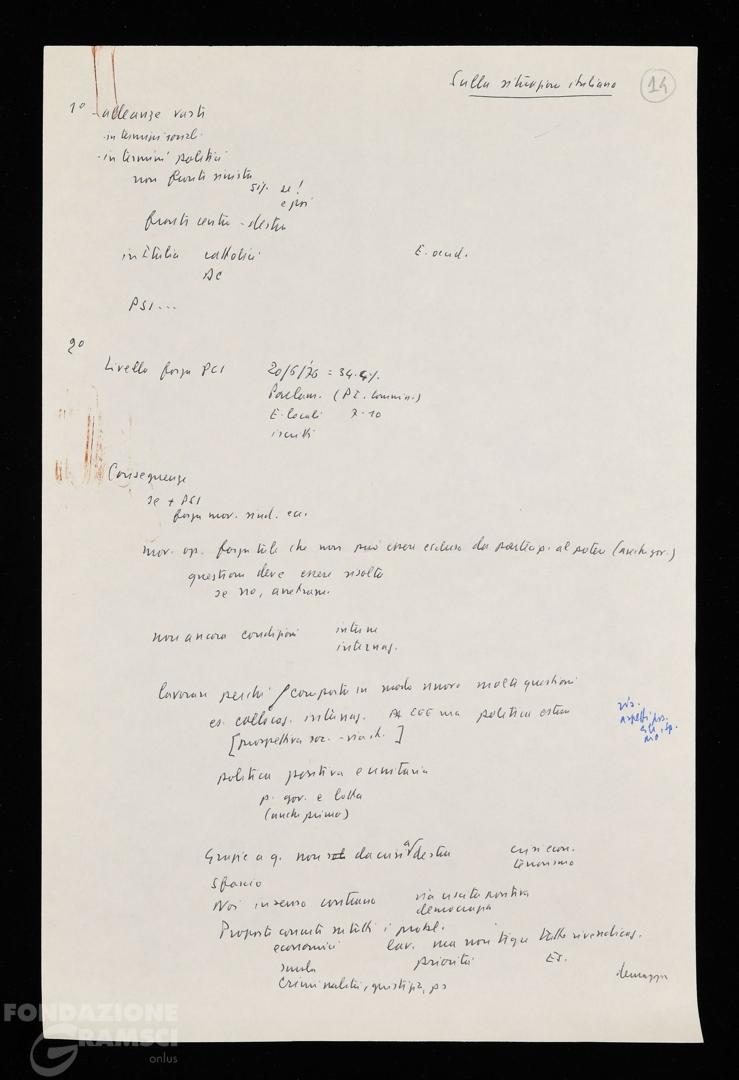 Sulla situazione italiana
14
1° - alleanze vaste
- in termini social.
- in termini politici
non fronti sinistra
sig. se!
e poi
fronti centro-destra
in Italia cattolici E. occid.
DC
PSI...
2°
Livello forza PCI 20/6/76 = 34.4%
Parlam. (PI. commiss.)
E. locali 7-10
iscritti
Conseguenze
se + PSI
forza mov. sind. ecc.
mov. op. forza tale che non può essere escluso da partecip. al potere (anche gov.)
questione deve essere risolta
se no, arretram.
non ancora condizioni interne
internaz.
lavorare perché comporta in modo nuovo molte questioni
es. collocaz. internaz. PA CEE ma politica estera
[prospettiva soc. - ]
politica positiva e unitaria
p. gov. e lotta
(anche prima)
Grazie a q. non da crisi a destra crisi econ.
terrorismo
Sfascio
Noi in senso contrario via uscita positiva
democrazia
Proposte concrete su tutti i probl.
economici lav. ma non rivendicaz.
scuola priorità
criminalità, giustizia, ps
FONDAZIONE
GRAMSCI
onlus